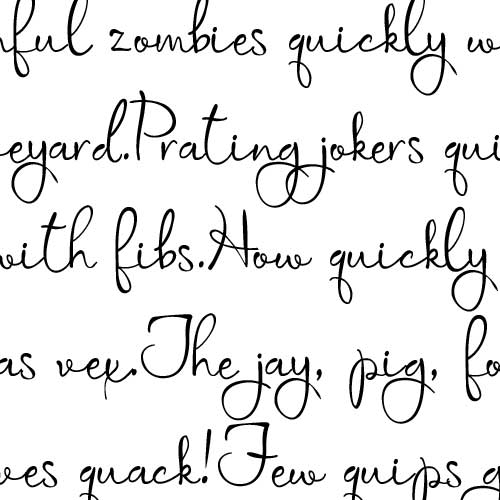 nful zombies quickly w
eyard.Prating jokers qui
with fibs.How quickly
as vex.The jay, pig, fo
ves quack!Few quips q